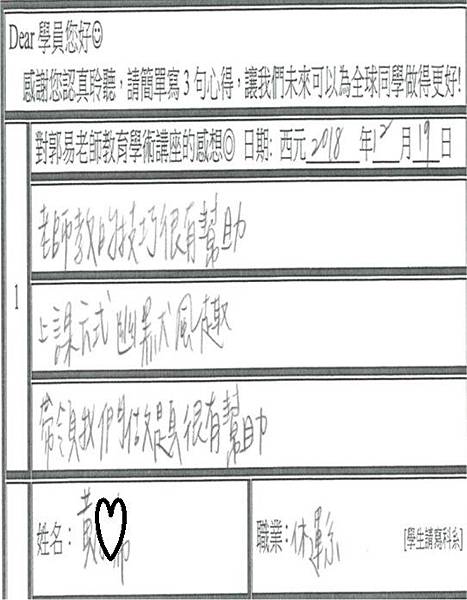 Dear 學員您好☺
感謝您認真聆聽，請簡單寫3句心得，讓我們未來可以為全球同學做得更好!
對郭易老師教育學術講座的感想◎ 日期: 西元 2018 年 12 月 19 日
1
老師教的技巧很有幫助
上課方式幽默風趣
帶領我們做題很有幫助
姓名: 黃
職業: 休運系 [學生請寫科系]